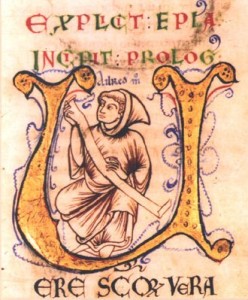 EXPLCT : EPLA
INCPIT : PROLOG
U
ERE SCOR VERA